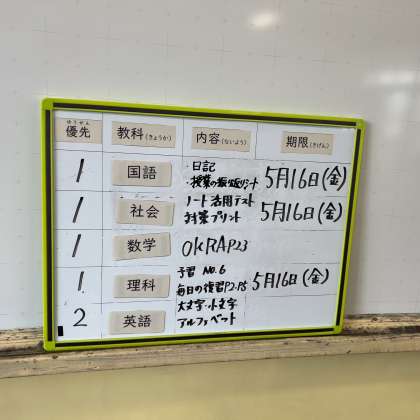 ゆうせん
優先 教科(きょうか) 内容(ないよう) 期限(きげん)
1 国語 ・日記
・授業の振り返りシート 5月16日(金)
1 社会 ノート活用テスト
対策プリント 5月16日(金)
1 数学 OKRAP23
1 理科 予習 No.6
毎日の復習P2.P5 5月16日(金)
2 英語 大文字・小文字
アルファベット